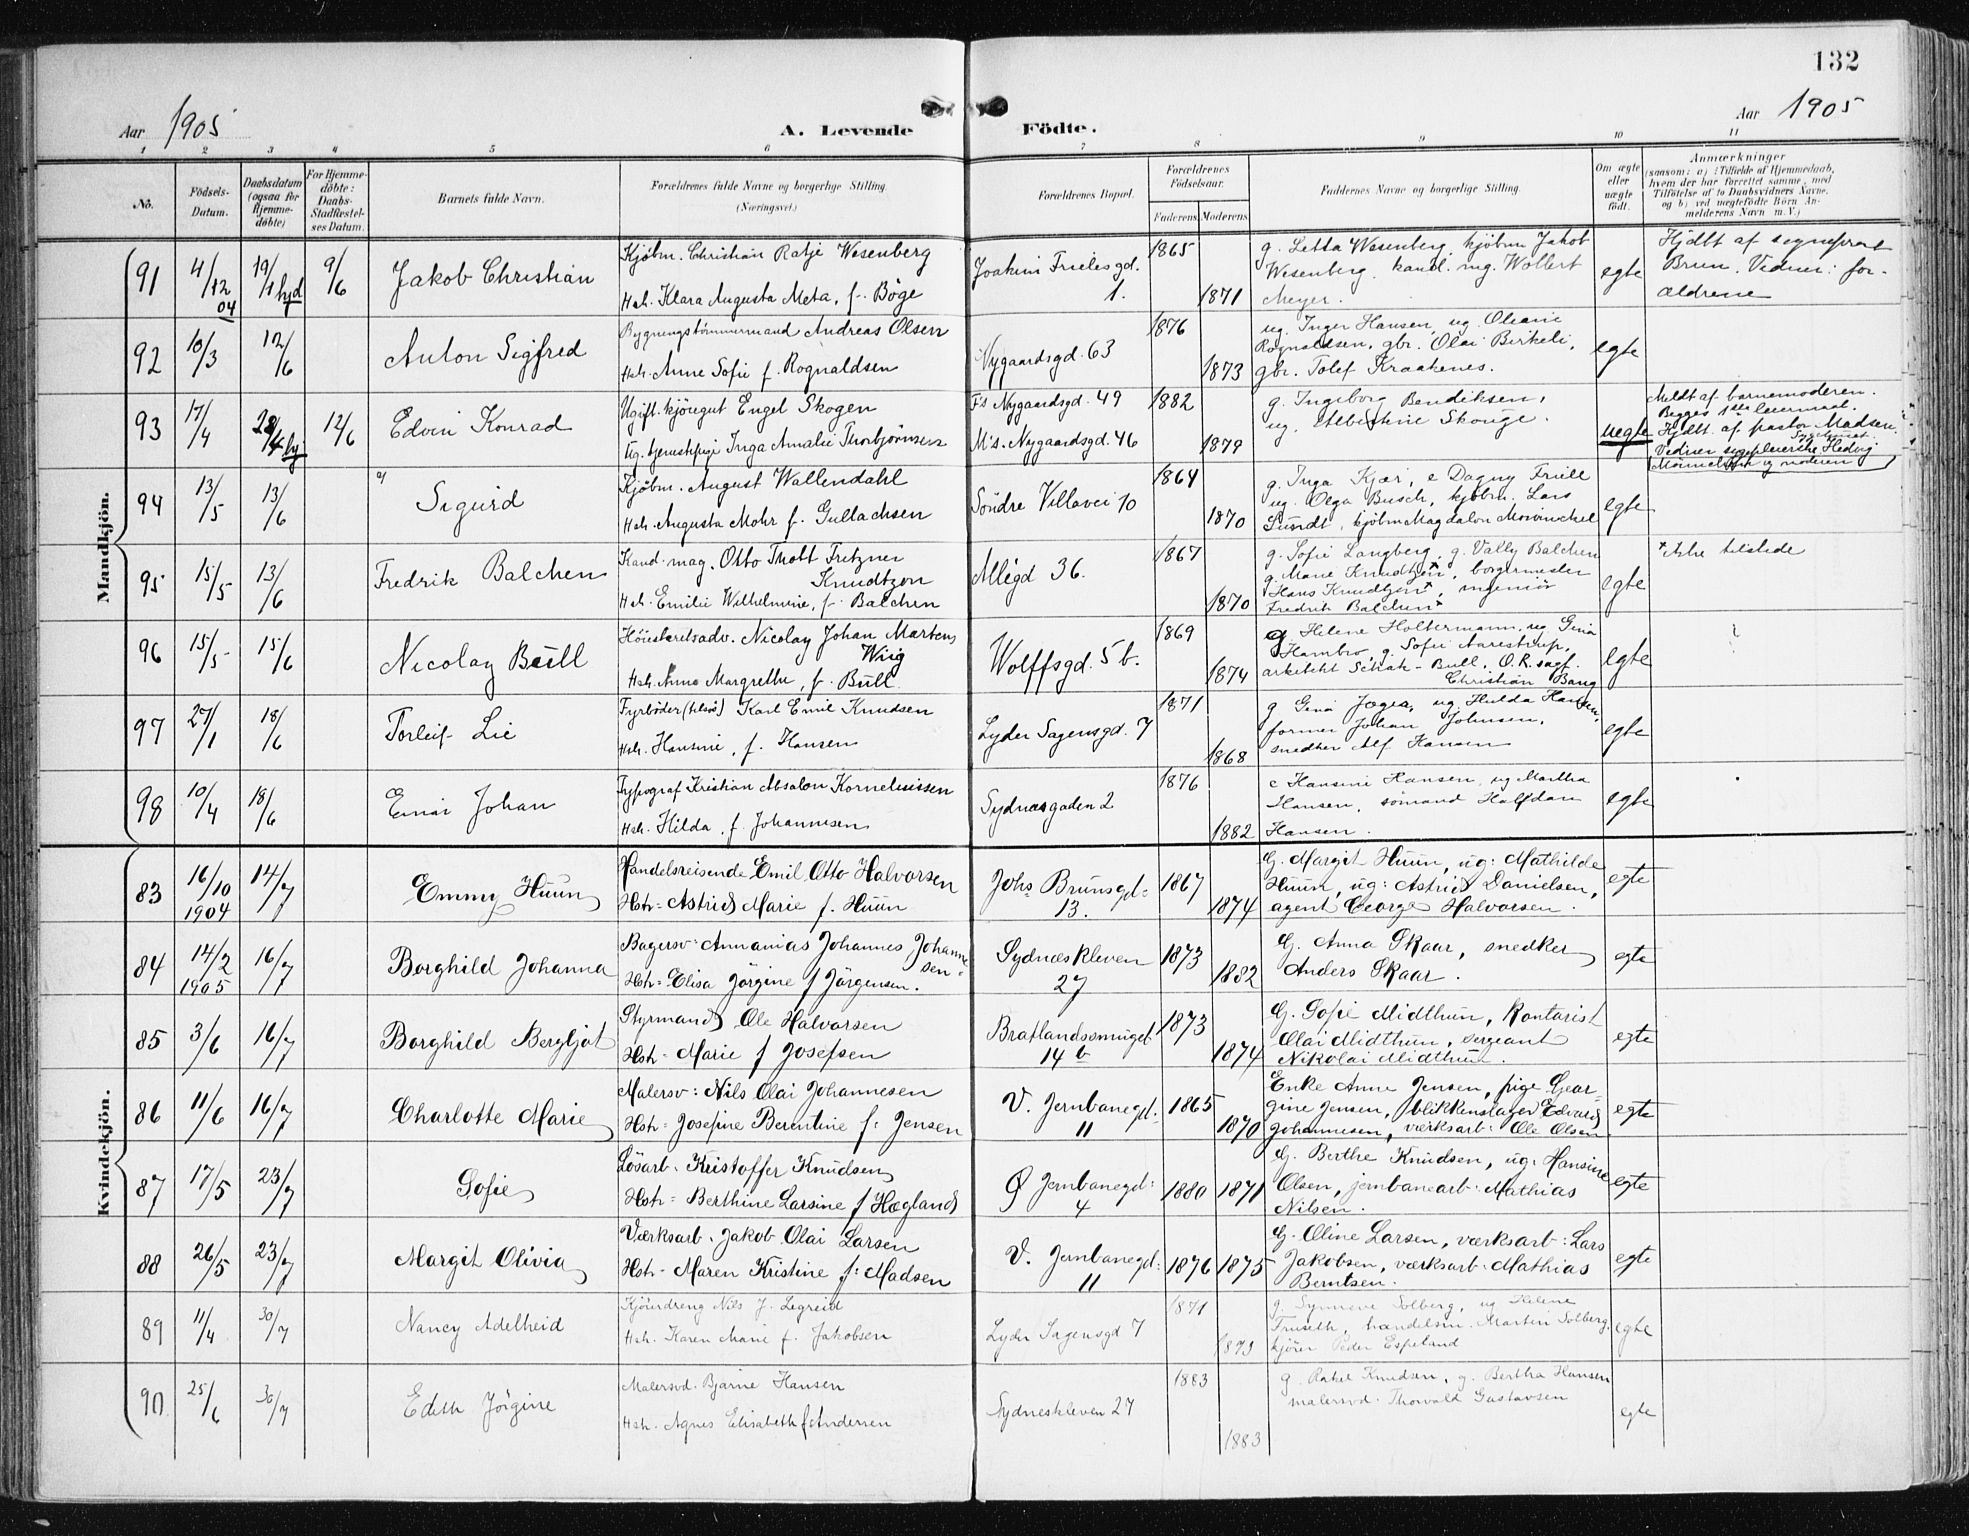 132
Aar 1905
A. Levende Födte.
Aar 1905
1 2 3 4 5 6 7 8 9 10 11
No.
Födsels-Datum.
Daabsdatum (ogsaa for Hjemme-döbte)
For Hjemme-döbte: Daabs-Stadfæstel-ses Datum.
Barnets fulde Navn.
Forældrenes fulde Navne og borgerlige Stilling.
(Næringsvei.)
Forældrenes Bopæl.
Forældrenes Födselsaar.
Faderens Moderens
Faddernes Navne og borgerlige Stilling.
Om ægte eller uægte födt.
Anmærkninger
(saasom: a) i Tilfælde af Hjemmedaab,
hvem der har forrettet samme, med
Tilföielse af to Daabsvidners Navne,
og b) ved uægtefödte Börn An-
melderens Navn m. V.)
Mandkjön.
91 4/12 04 19/1 hjd 9/6 Jakob Christian
Kjöbm. Christian Ratje Wesenberg
Hstr. Klara Augusta Meta, f. Böge
Joakim Frielesgd. 1.
1865 1871
g. Letta Wesenberg, kjöbm Jakob
Wesenberg, kand. mg. Wollert
Meyer.
egte
Hjdbt af sogneprest
Brun. Vidner: for-
ældrene
92 10/3 12/6 Anton Sigfred
Bygningstömmermand Andreas Olsen
Hstr. Anne Sofie f. Rognaldsen
Nygaardsgd. 63
1876 1873
ug. Inger Hansen, ug. Oleane
Rognaldsen, gbr. Olai Birkeli,
gbr. Tolef Kraakenes.
egte
93 17/4 28/4 hj 12/6 Edvin Konrad
Ugift. kjöregut Engel Skogen
Ug. tjenestepige Inga Amalie Thorbjörnsen
F's Nygaardsgd. 49
M's. Nygaardsgd. 46
1882 1879
g. Ingeborg Bendiksen,
ug. Albertine Skouge.
uegte
Meldt af barnemoderen.
Begges 1ste leiermaal.
Hjdbt. af pastor Madsen.
Vidner sygepleierske Hedvig
og moderen
94 13/5 13/6 Sigurd
Kjöbm. August Wallendahl
Hstr. Augusta Mohr f. Gullachsen
Söndre Villavei 10
1864 1870
g. Inga Kjær, e Dagny Friele
ug. Olga Busch, kjöbm. Lars
Sundt, kjöbm Magdalon
egte
95 15/5 13/6 Fredrik Balchen
Kand. mag. Otto Thott Fritzner
Knudtzon
Hstr. Emilie Wilhelmine, f. Balchen
Allégd 36.
1867 1870
g. Sofie Langberg, g. Vally Balchen
g. Marie Knudtzon, borgermester
Hans Knudtzon, ingeniör
Fredrik Balchen
egte
* ikke tilstede
96 15/5 15/6 Nicolay Bull
Höiesteretsadv. Nicolay Johan Martens
Wiig
Hstr. Anna Margrethe, f. Bull.
Wolffsgd. 5 b.
1869 1874
g. Helene Holtermann, ug. Gina
Hambro, g. Sofie Aarestrup,
arkitekt Schak-Bull, O.R. sagf.
Christian Bang
egte
97 27/1 18/6 Torleif Lie
Fyrböder (tilsös) Karl Emil Knudsen
Hstr. Hansine, f. Hansen
Lyder Sagensgd. 7
1871 1868
g Gina Jæger, ug. Hulda Hansen,
former Johan Johnsen,
snedker Alf Hansen
egte
98 10/4 18/6 Einar Johan
Typograf Kristian Absalon Korneliussen
Hstr. Hilda, f. Johannesen
Sydnæsgaden 2
1876 1882
e Hansine Hansen, ug Martha
Hansen, sömand Halfdan
Hansen.
egte
Kvindekjön.
83 16/10 1904 14/7 Emmy Huun
Handelsreisende Emil Otto Halvorsen
Hstr= Astrid Marie f. Huun
Johs Brunsgd= 13.
1867 1874
G. Margit Huun, ug: Mathilde
Huun, ug: Astrid Danielsen,
agent George Halvorsen.
egte
84 14/2 1905 16/7 Borghild Johanna
Bagersv: Annanias Johannes Johanne
sen.
Hstr= Elisa Jörgine f Jörgensen.
Sydnæskleven 27
1873 1882
G. Anna Skaar, snedker
Anders Skaar.
egte
85 3/6 16/7 Borghild Bergljot
Styrmand Ole Halvorsen
Hstr- Marie f Josefsen
Bratlandssmuget 14 b
1873 1874
G. Sofie Midthun, Kontorist
Olai Midthun, sergeant
Nikolai Midthun.
egte
86 11/6 16/7 Charlotte Marie
Malersv: Nils Olai Johannesen
Hstr- Josefine Berentine f: Jensen
V. Jernbanegd: 11
1865 1870
Enke Anne Jensen, pige Geor-
gine Jensen, blikkenslager Edvard
Johannesen, værksarb: Ole Olsen
egte
87 17/5 23/7 Sofie
Lösarb. Kristoffer Knudsen
Hstr= Berthine Larsine f Hægland
Ø Jernbanegd: 4
1880 1871
G. Berthe Knudsen, ug: Hansine
Olsen, jernbanearb: Mathias
Nilsen.
egte
88 26/5 23/7 Margit Olivia
Værksarb. Jakob Olai Larsen
Hstr- Maren Kristine f: Madsen
V. Jernbanegd: 11
1876 1875
G. Oline Larsen, værksarb: Lars
Jakobsen, værksarb: Mathias
Berntsen.
egte
89 11/4 30/7 Nancy Adelheid
Kjöredreng Nils J. Legreid
Hstr. Karen Marie f. Jakobsen
Lyder Sagensgd 7
1871 1873
g. Synneve Solberg, ug Helene
Fruseth, handelsm. Martin Solberg,
kjörer Peder Espeland
egte
90 25/6 30/7 Edith Jörgine
Malersvd. Bjarne Hansen
Hstr. Agnes Elisabeth f. Andersen
Sydneskleven 27
1883 1883
g. Rakel Knudsen, g. Bertha Hansen
malersvd. Thorvald Gustavsen
egte